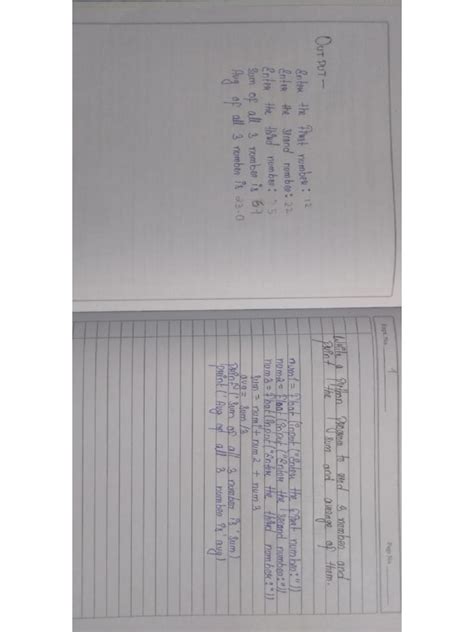 OUTPUT -
Enter the first number: 12
Enter the second number: 22
Enter the third number: 35
Sum of all 3 number is 67
Avg of all 3 number is 23.0
Page No
1
Write a Python program to read 3 number and
print the sum and average of them.
num1 = float(input("Enter the first number:"))
num2 = float(input("Enter the second number:"))
num3 = float(input("Enter the third number:"))
sum = num1 + num2 + num3
avg = sum/3
print('Sum of all 3 number is' sum)
print('Avg of all 3 number is' avg)
Page No